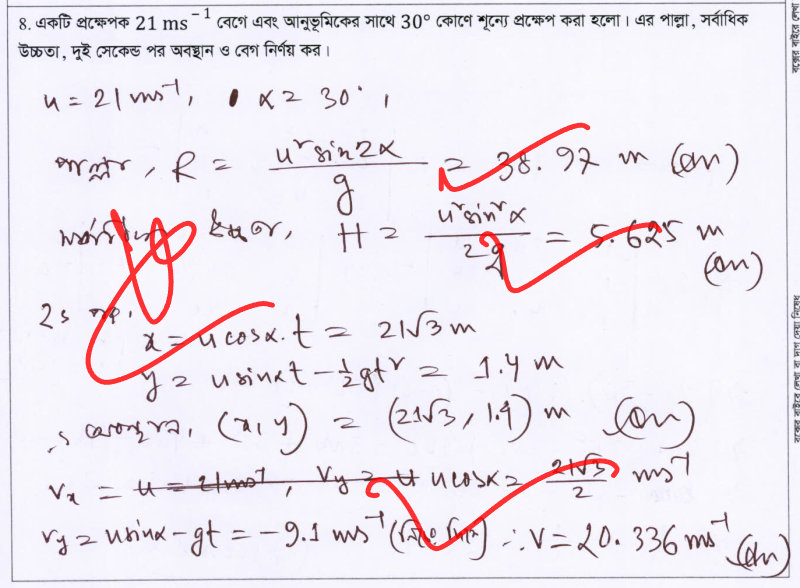 8. একটি প্রক্ষেপক 21 ms⁻¹ বেগে এবং আনুভূমিকের সাথে 30° কোণে শূন্যে প্রক্ষেপ করা হলো। এর পাল্লা, সর্বাধিক
উচ্চতা, দুই সেকেন্ড পর অবস্থান ও বেগ নির্ণয় কর।
u = 21 ms⁻¹, α = 30°,
পাল্লা, R = u² sin2α / g = 38.97 m (Ans)
সর্বাধিক উচ্চতা, H = u² sin²α / 2g = 5.625 m (Ans)
2s পর,
x = u cosα. t = 21√3 m
y = u sinα t - ½gt² = 1.4 m
∴ অবস্থান, (x, y) = (21√3, 1.4) m (Ans)
vₓ = u = 21 ms⁻¹, v_y = u u cosα = 21√3 / 2 ms⁻¹
v_y = u sinα - gt = -9.1 ms⁻¹ ∴ v = 20.336 ms⁻¹ (Ans)
বক্সের বাইরে লেখা
বক্সের বাইরে লেখা বা দাগ দেয়া নিষেধ